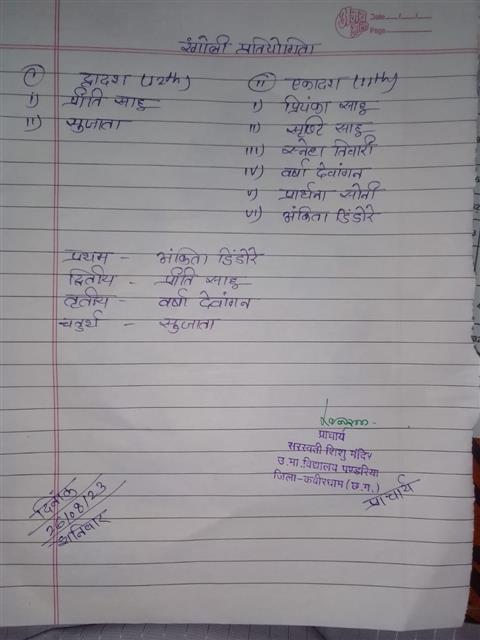 Date
Page
रंगोली प्रतियोगिता
I द्वादश (12th)
I) प्रीति साहू
II) सुजाता
II एकादश (11th)
I) प्रियंका साहू
II) सृष्टि साहू
III) स्नेहा तिवारी
IV) वर्षा देवांगन
V) प्रार्थना सोनी
VI) अंकिता डिंडोरे
प्रथम - अंकिता डिंडोरे
द्वितीय - प्रीति साहू
तृतीय - वर्षा देवांगन
चतुर्थ - सुजाता
प्राचार्य
सरस्वती शिशु मंदिर
उ.मा.विद्यालय पण्डरिया
जिला-कबीरधाम (छ.ग.)
प्राचार्य
दिनांक
26/08/23
शनिवार